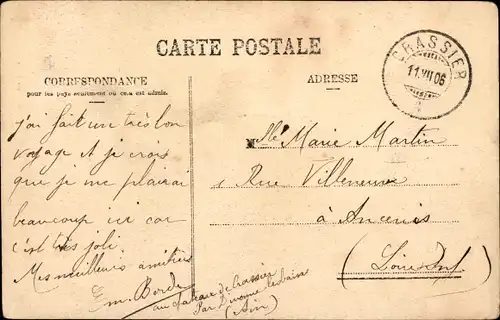 CARTE POSTALE
CORRESPONDANCE
pour les pays seulement où cela est admis.
j'ai fait un très bon
voyage et je crois
que je me plairai
beaucoup ici car
c'est très joli.
Mes meilleurs amitiés
Em. Borde
au château de Crassier
Par Divonne les bains
(Ain)
ADRESSE
CRASSIER
11.VII.06
Mlle Marie Martin
1 Rue Villeneuve
à Ancenis
(Loire Inf)